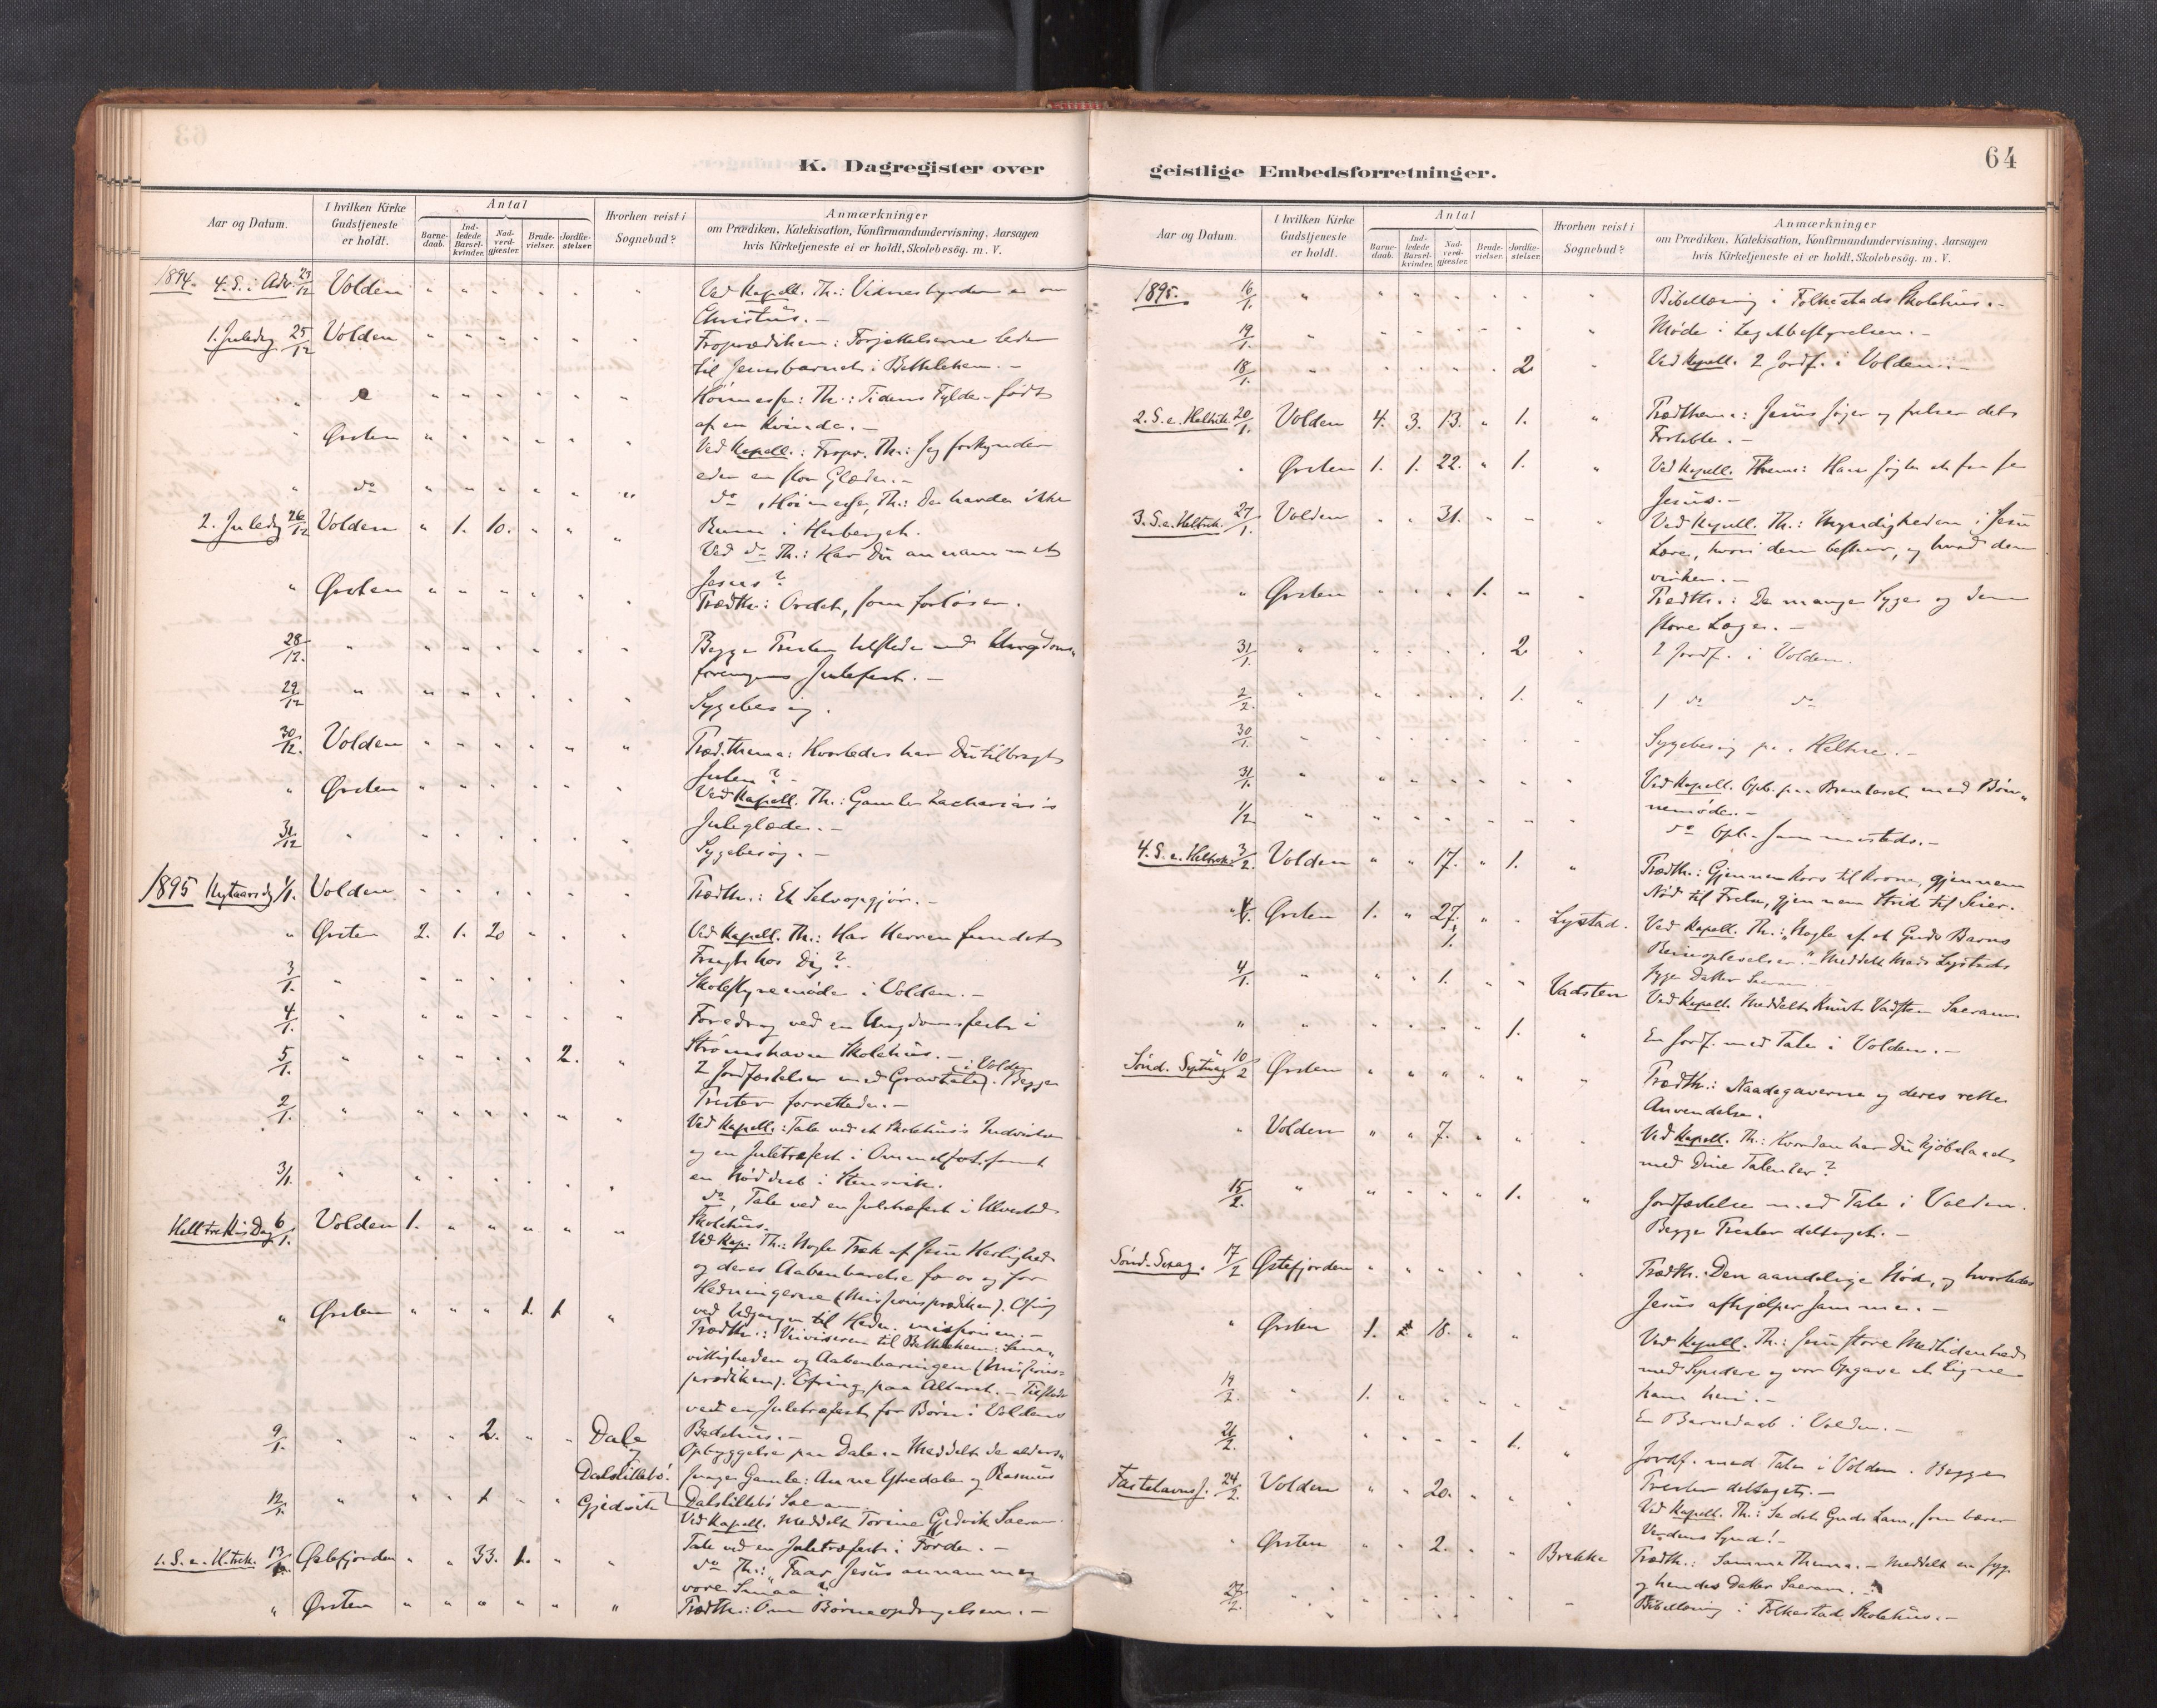 63
K. Dagregister over
Aar og Datum.
I hvilken Kirke Gudstjeneste er holdt.
Antal
Barnedaab.
Indledede Barselkvinder.
Nadverdgjæster.
Brudevielser.
Jordfæstelser.
Hvorhen reist i Sognebud?
Anmærkninger
om Prædiken, Katekisation, Konfirmandundervisning, Aarsagen
hvis Kirketjeneste ei er holdt, Skolebesög. m. V.
1894. 4. S. i Adv. 23/12 Volden " " " " " " Ved Kapell. Th.: Vidnesbyrden om
Christus.-
1. Juledag 25/12 Volden " " " " " " Froprædiken: Forjættelserne leder
til Jesusbarnet i Bethlehem.-
Høimesse: Th.: Tidens Fylde - født
af en Kvinde.-
" Ørsten " " " " " " Ved Kapell.: Fropr. Th.: Jeg forkynder
eder en stor Glæde.-
" do " " " " " " do, Høimesse, Th.: De havde ikke
Rum i Herberget.
2. Juledag 26/12 Volden " 1. 10. " " " Ved do Th.: Har Du annammet
Jesus?
" Ørsten " " " " " " Prædth.: Ordet, som forløser.
28/12. " " " " " " " Begge Prester tilstede ved Ungdoms-
foreningens Julefest.-
29/12 " " " " " " " Sygebesøg.
30/12. Volden " " " " " " Præd.thema: Hvorledes har Du tilbragt
Julen?-
" Ørsten " " " " " " Ved Kapell. Th.: Gamle Zacharias's
Juleglæde.-
31/12 " " " " " " " Sygebesøg.-
1895 Nytaarsdag 1/1. Volden " " " " " " Prædth.: Et Selvopgjør.-
" Ørsten 2. 1. 20 " " " Ved Kapell. Th.: Har Herren fundet
Frugt hos Dig?-
3/1. " " " " " " " Skolestyremøde i Volden.-
4/1. " " " " " " " Foredrag ved en Ungdomsfest i
Strømshavn Skolehus.-
5/1. " " " " " 2. " 2 Jordfæstelser med Gravtale i Volden. Begge
Prester forrettede.-
2/1. " " " " " " " Ved Kapell.: Tale ved et Skolehus's Indvielse
og en Juletræfest i
en i Stensvik.
3/1. " " " " " " " do, Tale ved en Juletræfest i Ulvestad
Skolehus.
Hell. tre K's Dag 6/1. Volden 1. " " " " " Ved Kap. Th.: Nogle Træk af Jesu Herlighed
og deres Aabenbarelse for os og for
Hedningerne (Missionsprædiken). Ofring
ved Udgangen til Hedn. missionen.-
" Ørsten " " " 1. 1 " Prædth.: Veiviseren til Bethlehem: Sam-
vittigheden og Aabenbaringen (Missions-
prædiken). Ofring paa Altaret.- Tilstede
ved en Juletræfest for Børn i Voldens
Bedehus.-
9/1. " " " 2. " " Dale og Dalstillebø. Opbyggelse paa Dale.- Meddelt de alders-
svage Gamle: Anne Ytredale og Rasmus
Dalstillebø Sacram.
12/1. " " " 1 " " Gjedvik Ved Kapell. Meddelt Torine Gjedvik Sacram.
Tale ved en Juletræfest i Førde.-
1. S. e. H.trek. 13/1. Østefjorden " " 33. 1. " " do Th.: "Faar Jesus annamme
vore Smaa?"
" Ørsten " " " " " " Prædth.: Om Børneopdragelsen.-
64
geistlige Embedsforretninger.
Aar og Datum.
I hvilken Kirke Gudstjeneste er holdt.
Antal
Barnedaab.
Indledede Barselkvinder.
Nadverdgjæster.
Brudevielser.
Jordfæstelser.
Hvorhen reist i Sognebud?
Anmærkninger
om Prædiken, Katekisation, Konfirmandundervisning, Aarsagen
hvis Kirketjeneste ei er holdt, Skolebesög. m. V.
1895. 16/1. " " " " " " " Bibellæsning i Folkestads Skolehus.-
19/1. " " " " " " " Møde i Legatbestyrelsen.-
18/1. " " " " " 2 " Ved Kapell. 2 Jordf. i Volden.-
2. S. e. Helltrek. 20/1. Volden 4. 3. 13. " 1. " Prædthema: Jesus søger og frelser det
Fortabte.-
" Ørsten 1. 1. 22. " 1. " Ved Kapell. Thema: Han søgte at faa se
Jesus.-
3. S. e. Helltrek. 27/1. Volden " " 31. " " " Ved Kapell. Th.: Myndigheden i Jesu
Lære, hvori den bestaar, og hvad den
virker.-
" Ørsten " " " 1. " " Prædth.: De mange Syge og den
store Læge.-
31/1. " " " " " 2 " 2 Jordf. i Volden.
2/2. " " " " " 1. " 1 do do
30/1. " " " " " " " Sygebesøg paa Heltne.-
31/1. " " " " " " " Ved Kapell. Opb. paa med Bøn-
nemøde.-
1/2 " " " " " " " do Opb. sammesteds.-
4. S. e. Helltrek. 3/2. Volden " " 17. " 1. " Prædth.: Gjennem Kors til Krone, gjennem
Nød til Frelse, gjennem Strid til Seier.
" Ørsten 1. " 27. 1. " " Lystad. Ved Kapell. Th.: "Nogle af et Guds Barns
Reiseoplevelser." Meddelt Mads Lystads
syge Datter Sacram.
4/1. " " " 1. " " Vadsten Ved Kapell. Meddelt Knut Vadsten Sacram.
" " " " " " 1. " En Jordf. med Tale i Volden.-
Sønd. Septuag. 10/2 Ørsten " " " " " " Prædth.: Naadegaverne og deres rette
Anvendelse.
" Volden " " 7. " " " Ved Kapell. Th.: Hvordan har Du kjøbslaaet
med Dine Talenter?
15/2. " " " " " 1. " Jordfæstelse med Tale i Volden.
Begge Prester deltaget.-
Sønd. Sexag. 17/2 Østefjorden " " " " " " Prædth.: Den aandelige Nød, og hvorledes
Jesus afhjælper samme.-
" Ørsten 1. 18. " " " Ved Kapell. Th.: Jesu store Medlidenhed
med Syndere og vor Opgave at ligne
ham heri.-
19/2. " 1. " " " " " En Barnedaab i Volden.-
21/2. " " " " " 1. " Jordf. med Tale i Volden. Begge
Prester deltaget.-
Fastelavnss. 24/2. Volden " " 20. " " " Ved Kapell. Th.: Se det Guds Lam, som bærer
Verdens Synd!-
" Ørsten " " 2. " " Brekke Prædth.: Samme Thema.- Meddelt en syg.
og hendes Datter Sacram.-
27/2. " " " " " " " Bibellæsning i Folkestad Skolehus.-